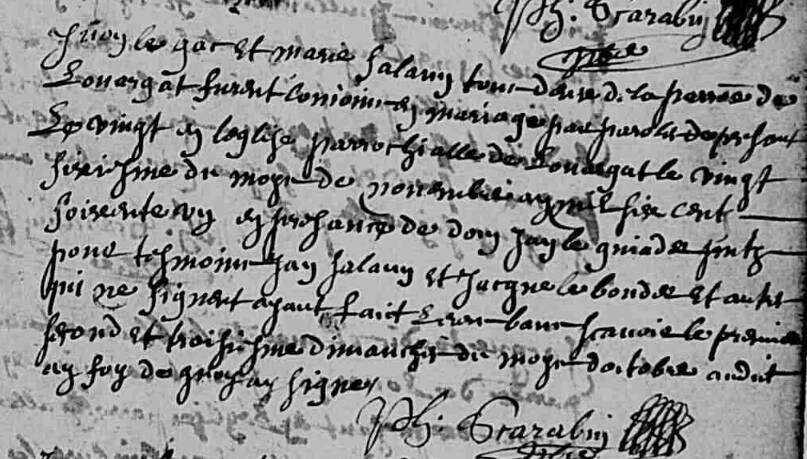 Ph. Scarabin
ptre
Yvon le gac et marie salaun tous deux de la perroesse de
Louargat furent conioinct en mariage par parolle de present
Le vingt en leglise parrochialle de Louargat le vingt
sixiesme du moys de novembre an mil six cent
soixente en presance de dom jan le guiader
pour tesmoins jan salaun et jacque le bonder et autres
qui ne signent ayant faict Leur bans scavoir le premier
second et troisiesme dimanche du moys doctobre audit
en foy de quoy ay signe
Ph. Scarabin
ptre